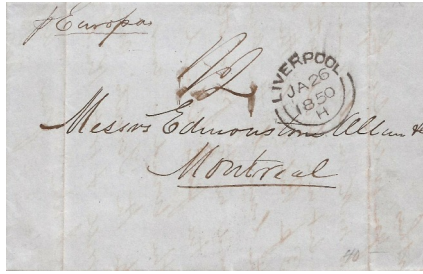 p Europa
1/2
LIVERPOOL
JA 26
1850
H
Messrs Edmonstone Allan &
Montreal